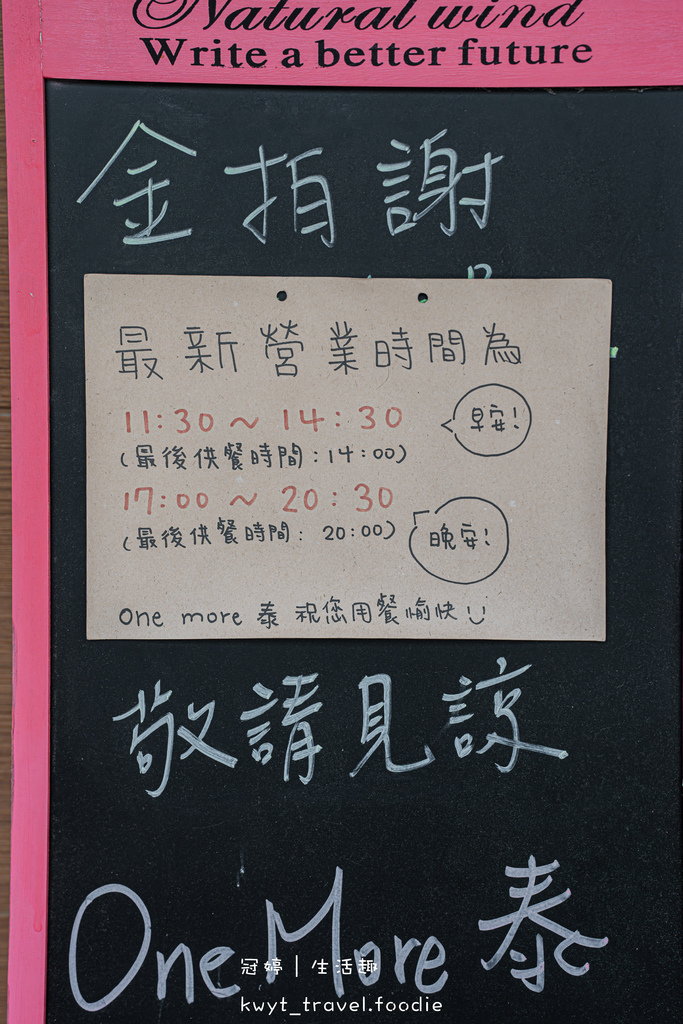 Natural wind
Write a better future
金拍謝
最新營業時間為
11:30 ~ 14:30
早安!
(最後供餐時間:14:00)
17:00 ~ 20:30
(最後供餐時間: 20:00)
晚安!
One more 泰 祝您用餐愉快
敬請見諒
One More 泰
冠婷|生活趣
kwyt_travel.foodie